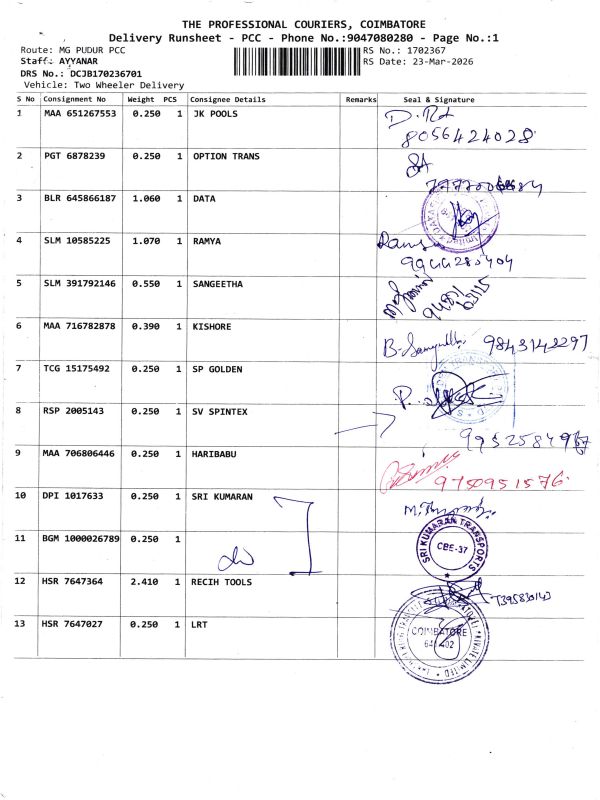 THE PROFESSIONAL COURIERS, COIMBATORE
Delivery Runsheet - PCC - Phone No.:9047080280 - Page No.:1
Route: MG PUDUR PCC
RS No.: 1702367
Staff: AYYANAR
RS Date: 23-Mar-2026
DRS No.: DCJB170236701
Vehicle: Two Wheeler Delivery
S No Consignment No Weight PCS Consignee Details Remarks Seal & Signature
1 MAA 651267553 0.250 1 JK POOLS
8056424028
2 PGT 6878239 0.250 1 OPTION TRANS
3 BLR 645866187 1.060 1 DATA
4 SLM 10585225 1.070 1 RAMYA
9944280404
5 SLM 391792146 0.550 1 SANGEETHA
6 MAA 716782878 0.390 1 KISHORE
9843142297
7 TCG 15175492 0.250 1 SP GOLDEN
8 RSP 2005143 0.250 1 SV SPINTEX
9 MAA 706806446 0.250 1 HARIBABU
9750951576
10 DPI 1017633 0.250 1 SRI KUMARAN
11 BGM 1000026789 0.250 1
SRI KUMARAN TRANSPORTS
CBE-37
12 HSR 7647364 2.410 1 RECIH TOOLS
7395830143
13 HSR 7647027 0.250 1 LRT
COIMBATORE
641 402